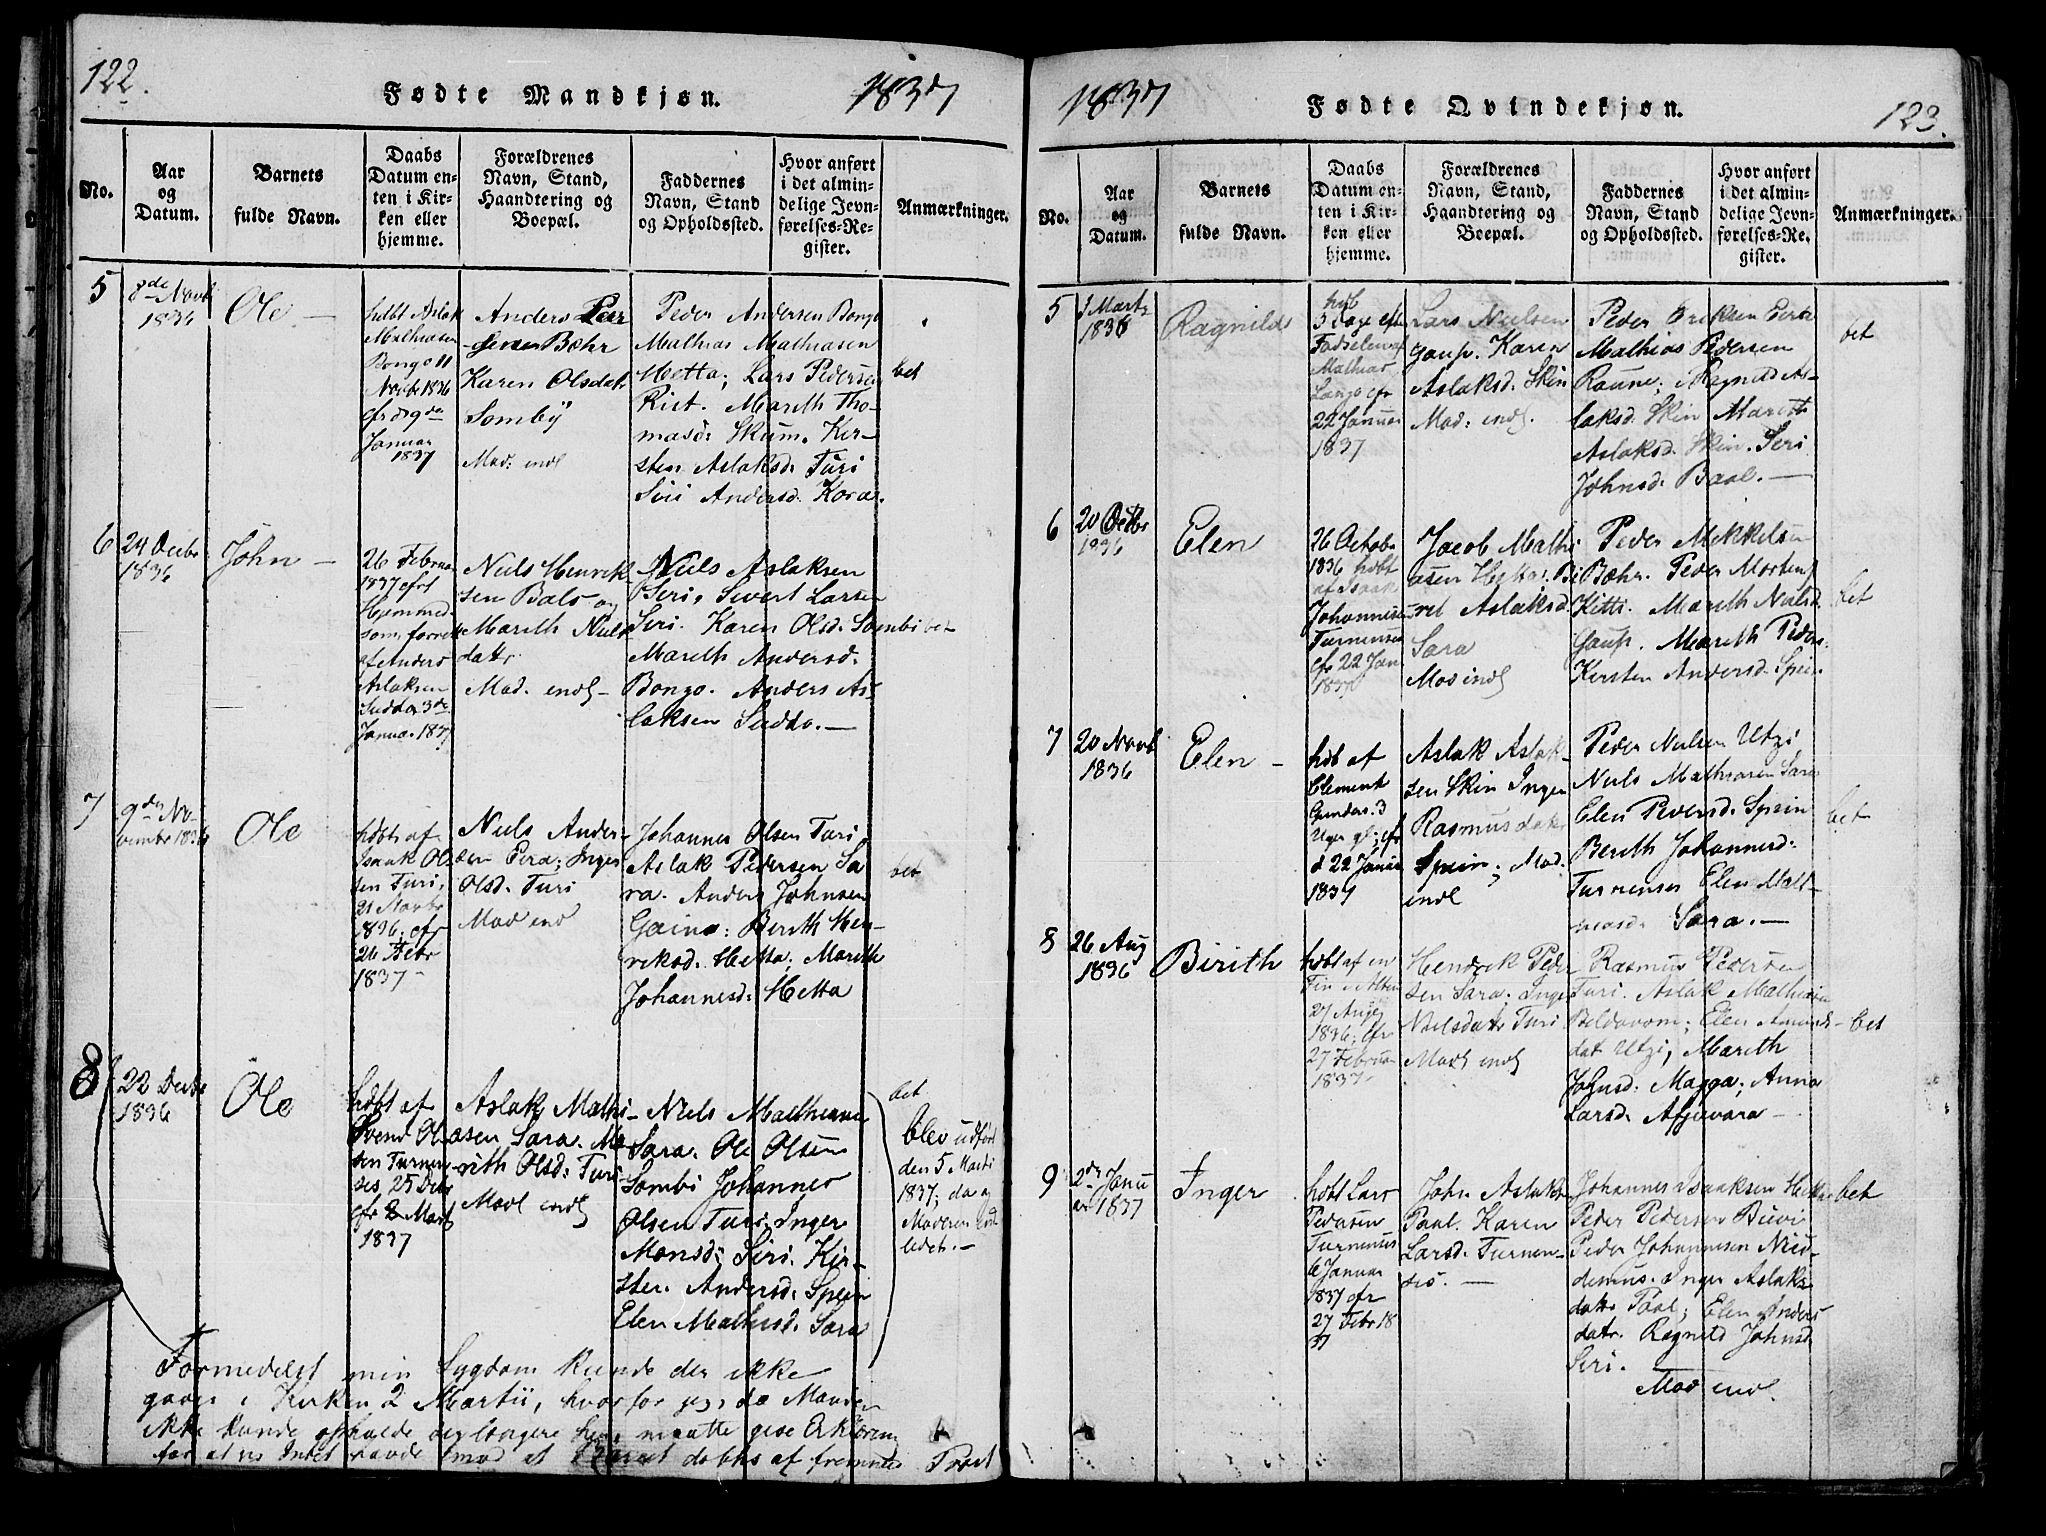 122.
Fødte Mandkjøn.
1837
No.
Aar
og
Datum.
Barnets
fulde Navn.
Daabs
Datum en-
ten i Kir-
ken eller
hjemme.
Forældrenes
Navn, Stand,
Haandtering og
Boepæl.
Faddernes
Navn, Stand
og Opholdssted.
Hvor anført
i det almin-
delige Jevn-
førelses-Re-
gister.
Anmærkninger.
5
8de Novbr
1836
Ole —
hdbt Aslak
Mathiasen
Bongo 11
Novbr 1836
Januar
1837
Anders
Bæhr
Karen Olsdatr
Somby
Mod: indl
Peder Andersen Bongo
Mathias Mathiasen
Hetta; Lars Pedersen
Rist. Marith Tho-
masd: Skum. Kir-
sten Aslaksd. Turi
Siri Andersd. Kora.
bet
6
24 Decbr
1836
John —
26 Februar
1837 efr
Hjemmed.
som forrett
af Anders
Aslaksen
Sudda 3de
Januar 1837
Niels Henrik-
sen Bals og
Marith Niels
datr
Mod. indl —
Niels Aslaksen
Seri, Sivert Larsen
Seri. Karen Olsd. Sombi
Marith Andersd.
Bongo. Anders As-
laksen Sudda. —
bet
7
9de No-
vember 1836
Ole
hdbt af
Isaak Ol
sen Turi,
21 Novbr
1836; efr
26 Febr
1837 —
Niels Ander-
sen Eira; Inger
Olsd. Turi
Mod ind
Johannes Olsen Turi
Aslak Pedersen Sa
ra. Anders Johnsen
Gaino: Berith Hen-
reksd. Hetta; Marith
Johannesd: Hetta
bet
8
22 Decbr
1836
Ole
hdbt af
Svend Ol
sen Turnen
ses, 25 Debr
efr 2 Mart
1837
Aslak Mathi-
asen Sara. Ma
rith Olsd: Turi
Modl indl
Niels Mathiasen
Sara. Ole Olsen
Sombi Johannes
Olsen Turi, Inger
Monsd; Siri. Kir-
sten. Andersd. Spein
Elen Mathisd. Sara
bet
blev udført
den 5 Marti
1837; da og
Moderen ind
ledet. —
Formedelst min Sygdom kunde der ikke
gaaes i Kirken 2 Martii, hvorfor jeg, da Manden
ikke kunde opholde sig længere her, maatte give Erklæring
for at vis Intet havde imod at Barnet døbtes af fremmed Præst
1837
Fødte Qvindekjøn.
123.
No.
Aar
og
Datum.
Barnets
fulde Navn.
Daabs
Datum en-
ten i Kir-
ken eller
hjemme.
Forældrenes
Navn, Stand,
Haandtering og
Boepæl.
Faddernes
Navn, Stand
og Opholdssted.
Hvor anført
i det almin-
delige Jevn-
førelses-Re-
gister.
Anmærkninger.
5
1 Marts
1836
Ragnild
hdb
3 Dage eftr
Fødselen af
Mathias
efr
22 Januar
1837
Lars Nielsen
Gaup. Karen
Aslaksd. Skin
Mod: indl.
Peder Eriksen Eira
Mathias Pedersen
Raune; Ragnild As-
laksd. Skin Marith
Aslaksd. Skin. Seri
Johnsd. Baal. —
bet
6
20 Octbr
1836
Elen
26 Octobr
1836 hdbt
af Isaak
Johannesen
Turnenses
efr 22 Jan
1837
Jacob Mathi
asen Hetta. Bi
ret Aslaksd.
Sara
Mod indl
Peder Mikkelsen
Bæhr. Peder Mortens
Kitti. Marith Nielsd.
Gaup. Marith Peders.
Kirsten Andersd. Spein.
bet
7
20 Novbr
1836
Elen —
hdbt af
Clement
Gunders. 3
Uger gl; efr
d 22 Januar
1837
Aslak Aslak-
sen Skin Inger
Rasmusdatr
Spein; Mod.
indl
Peder Nielsen Utzi
Niels Mathiasen Sara
Elen Pedersd. Spein
Berith Johannesd:
Turnenses Elen Mat-
hiasd. Sara. —
bet
8
26 Aug
1836
Birith
hdbt af en
Fin i Alten
27 Aug
1836; efr
27 Februar
1837 —
Hendrik Peder
sen Sara; Inger
Nielsdatr Turi
Modl indl
Rasmus Pedersen
Turi. Aslak Mathiasen
Beldovom; Elen Amunds-
dat Utzi; Marith
Johnsd: Magga; Anna
Larsd. Afjovara —
bet
9
2de Janu
ar 1837
Inger
hdbt Lars
Pedersen
Turnenses
6 Januar
1837 efr
27 Febr 18
37
John Aslaks
Paal. Karen
Larsd. Turnen-
ses. —
Johannes Isaaksen Hetta
Peder Pedersen Buevi
Peder Johannesen Nico-
demus. Inger Aslaks
datr Paal; Elen Anders
datr. Ragnild Johnsd
Seri.
Mod indl
bet